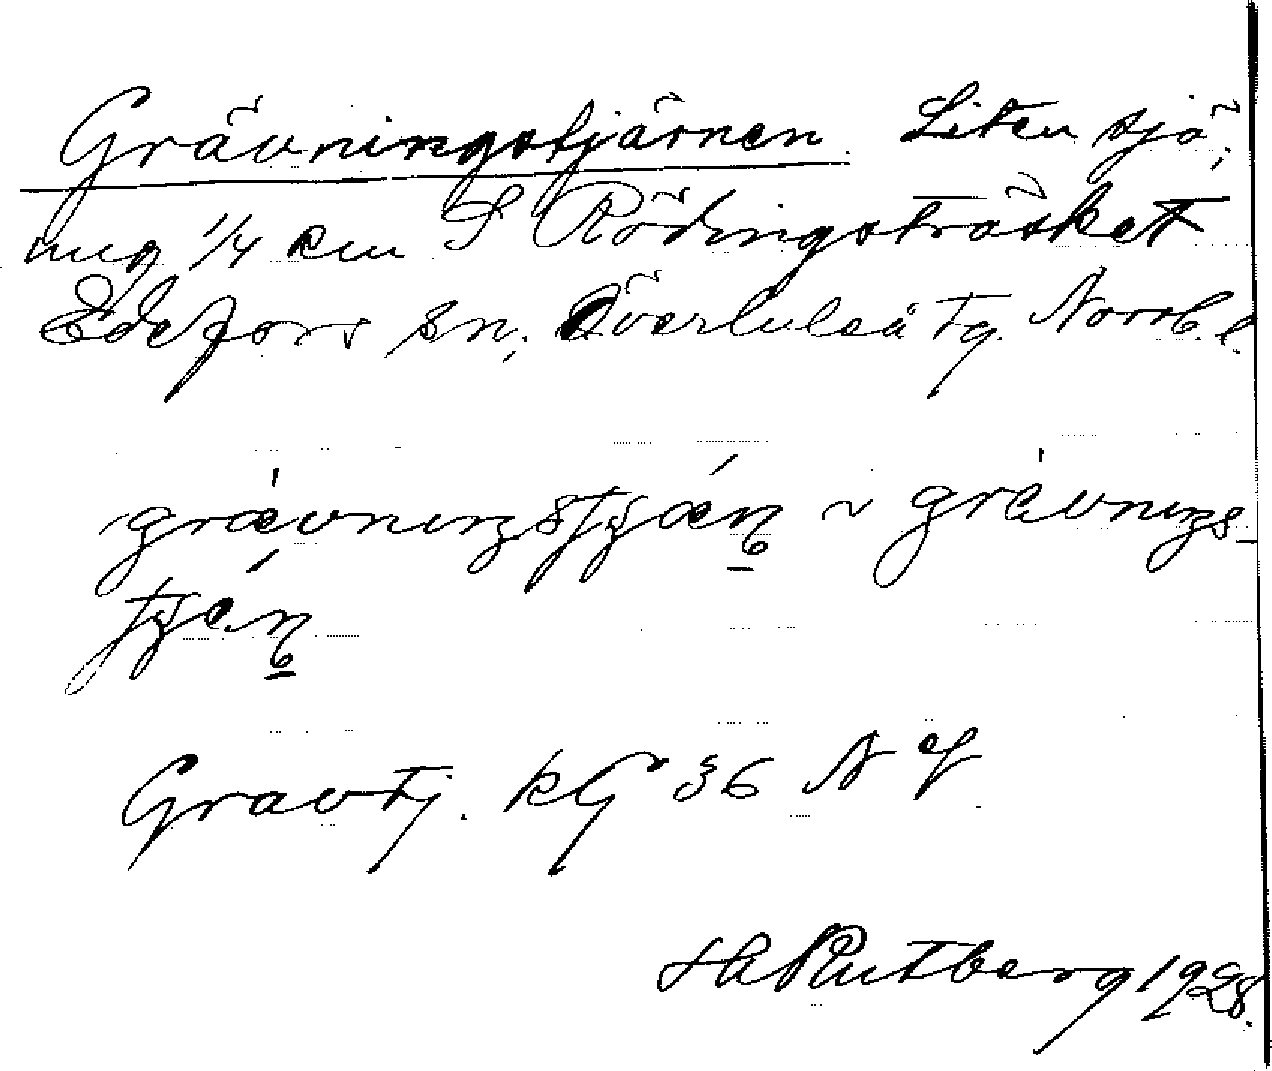 Grävningstjärnen. Liten sjö,
ung 1/4 km S Rödingsträsket
Edefors sn, Överluleå tg. Norrb. l.
grævnıŋstjæn ~ grävnıŋs-
tjän
Gravtj. kG 36 N
H Rutberg 1928.